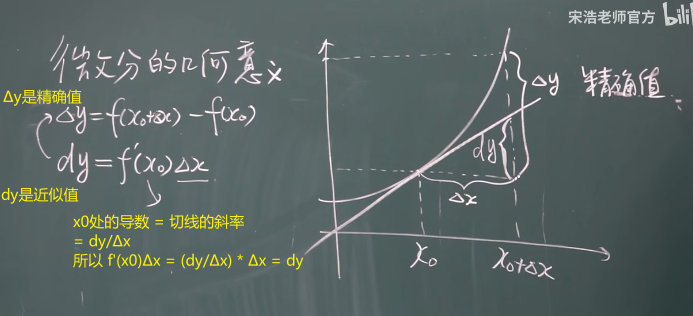 宋浩老师官方 bili
微分的几何意义
Δy是精确值
Δy=f(x₀+Δx)-f(x₀)
dy=f'(x₀)Δx
dy是近似值
x0处的导数 = 切线的斜率
= dy/Δx
所以 f'(x0)Δx = (dy/Δx) * Δx = dy
Δy 精确值
dy
Δx
x₀
x₀+Δx